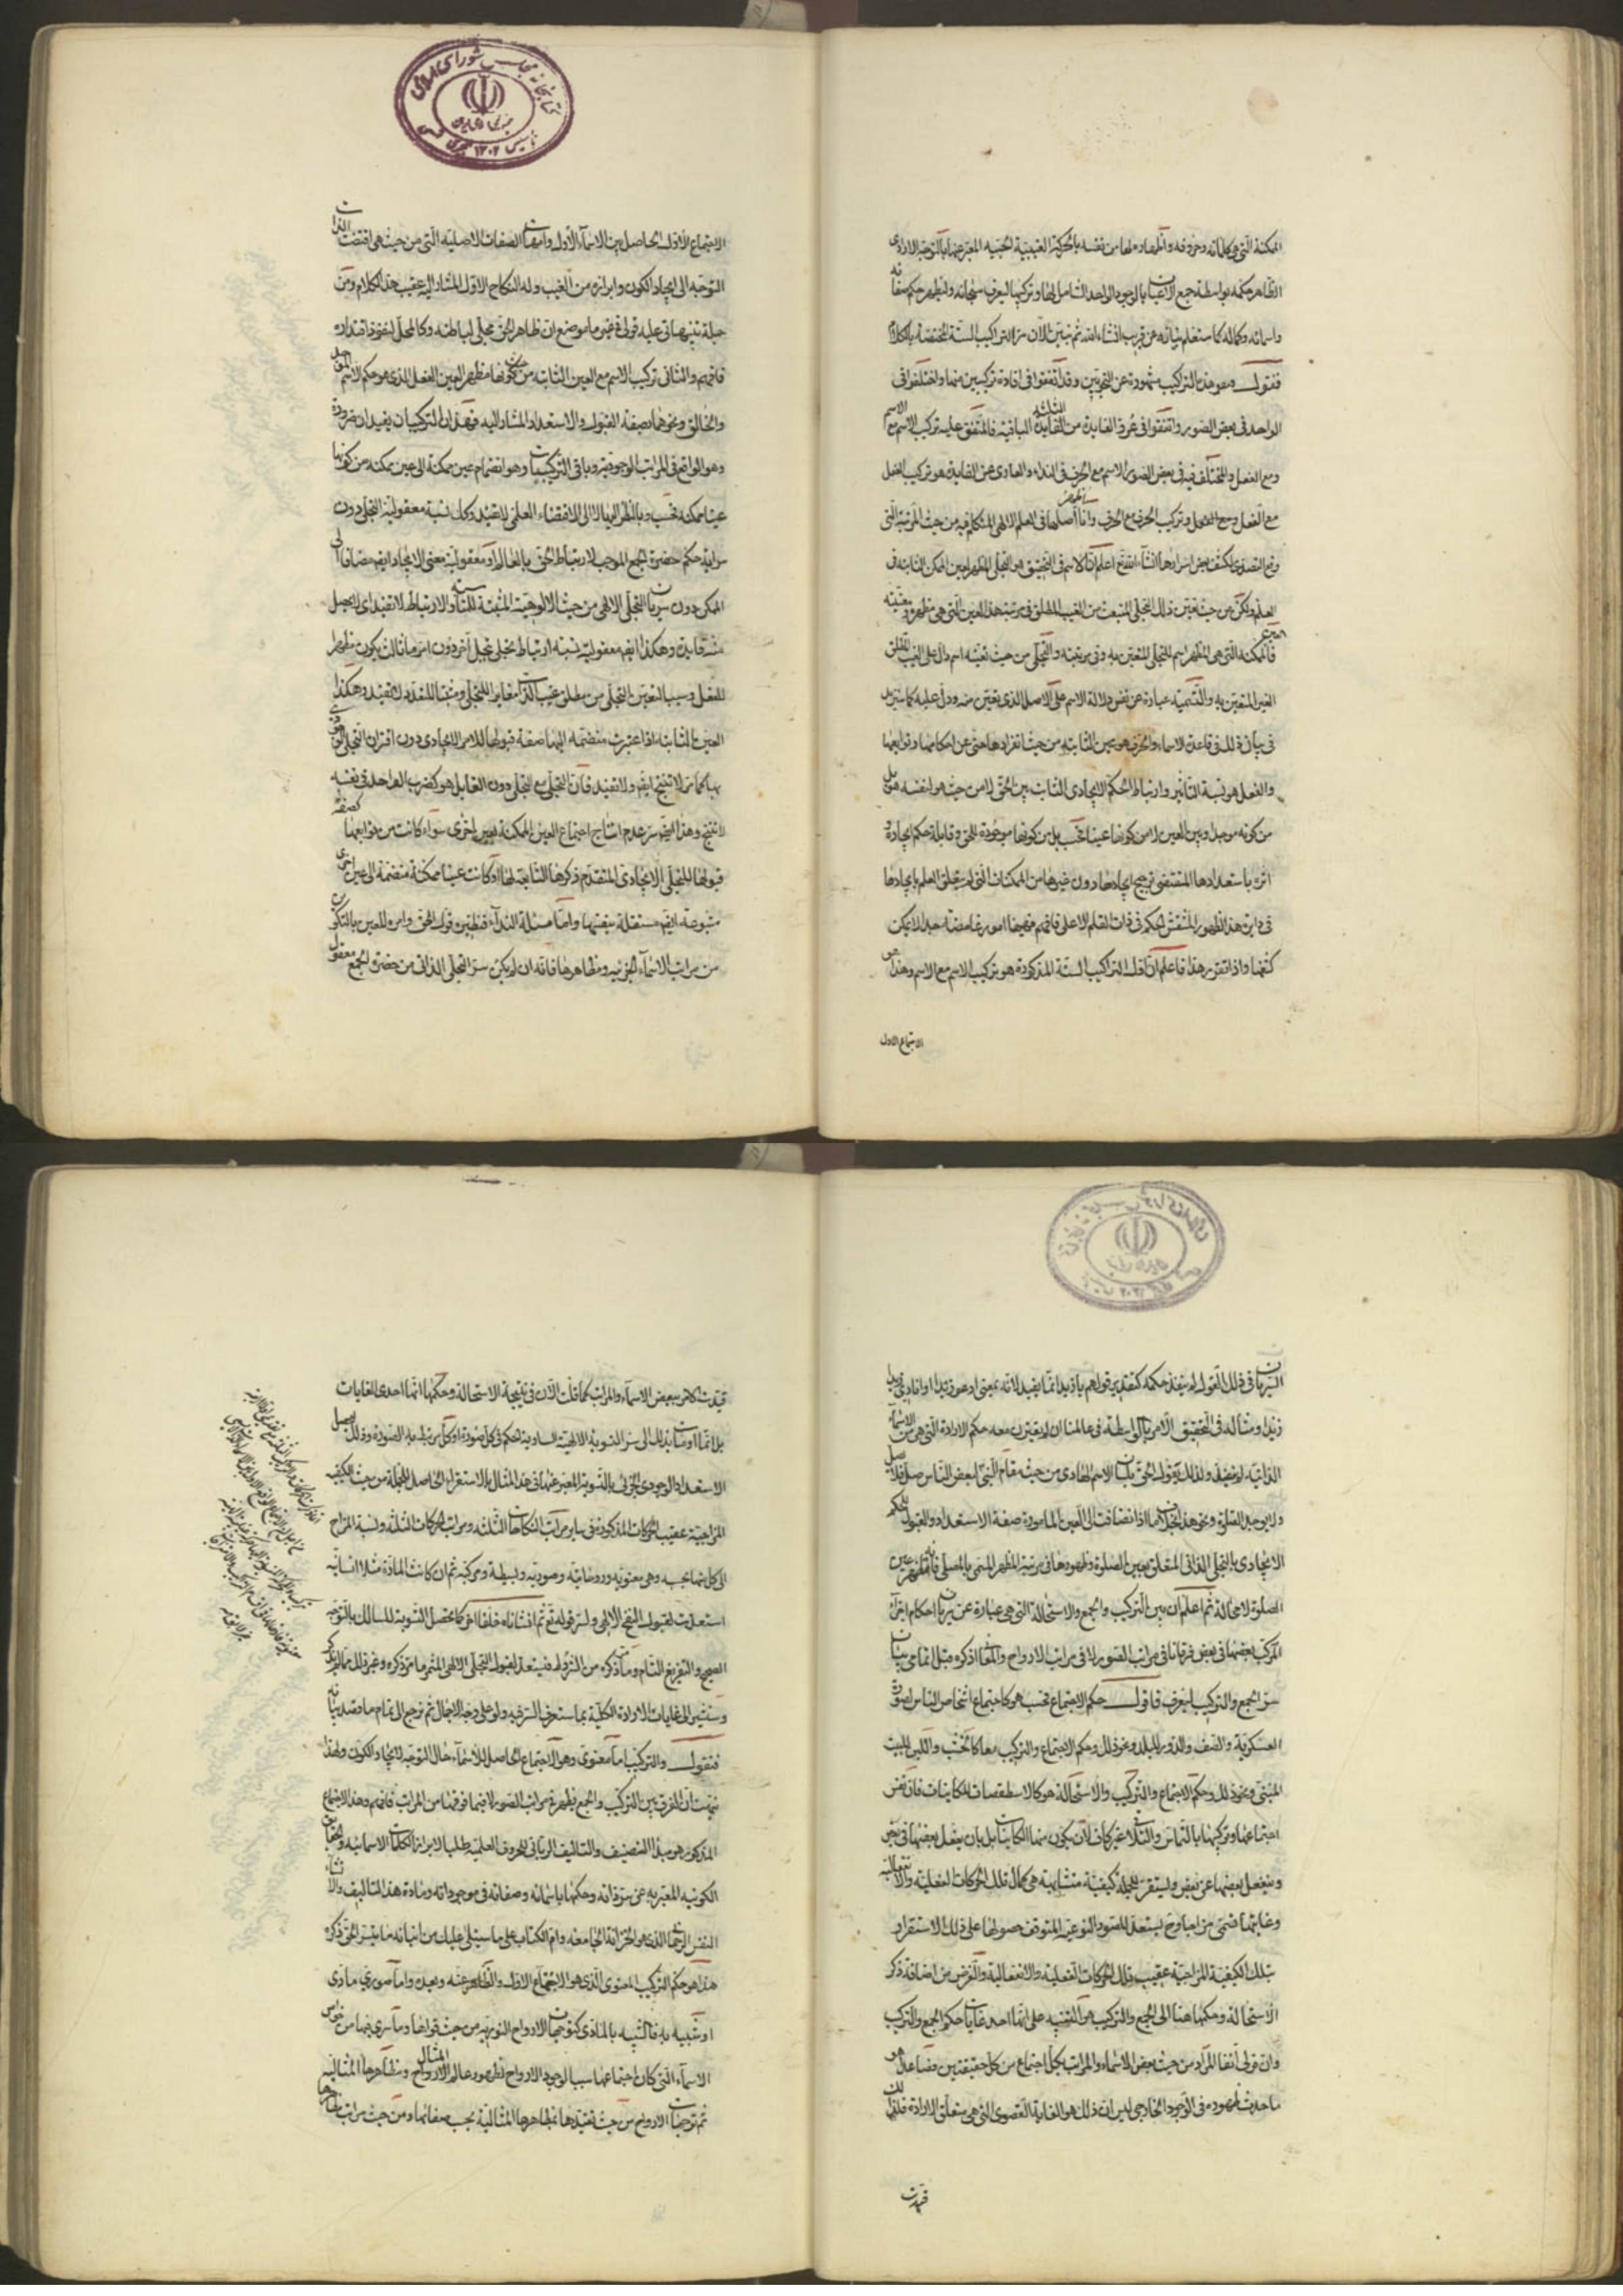 الممكنة التي هي كلماته وحروفه وأظهارها من نفسه بالحركة الغيبية الحبية المعبر عنها بالتوجه الإرادي
الظاهر حكمه بواسطة جمع الأعيان بالوجود الواحد الشامل لها وتركيبها ليعرف سبحانه وليظهر حكم صفاته
وأسمائه وكماله كما ستعلم بنائه عن قريب إنشاء الله ثم نبين الآن سر التراكيب الستة المختصة بالكلام
فنقول وهذه التراكيب مشهودة عن النحويين وقد اتفقوا في إفادة تركيبين منها واختلفوا في
الواحد في بعض الصور واتفقوا في عرو الفايدة من الثلثة الباقية فالمتفق عليه تركيب الاسم مع الاسم
ومع الفعل والمختلف فيه في بعض الصور الاسم مع الحرف في النداء والعادي عن الفايدة هو تركيب الفعل
مع الفعل ومع الحرف وتركيب الحرف مع الحرف وأنا أظهر أصلها في العلم الإلهي المتكلم فيه من حيث المرتبة التي
وقع التصدي لكشف بعض أسرارها إنشاء الله تع اعلم أن الاسم في التحقيق هو التجلي المظهر لعين الممكن الثابتة في
العلم ولكن من حيث تعين ذلك التجلي المنبعث من الغيب المطلق في مرتبة هذه العين التي هي مظهره ومعينته
فالعين الممكنة التي هي المظهر اسم للتجلي المتعين به وفي مرتبته والتجلي من حيث تعينه اسم دال على الغيب المطلق
الغير المتعين به والتسمية عبارة عن نفس دلالة الاسم على الأصل الذي تعين منه ودل عليه كما سنزيد
في بيان ذلك في قاعدة الأسماء والحرف هو عين الثابتة من حيث انفرادها حتى عن أحكامها وتوابعها
والفعل هو نسبة التأثير وارتباط الحكم الإيجادي الثابت بين الحق لا من حيث هو لنفسه هو بل
من كونه موجدا وبين العين لا من كونها عينا فحسب بل من كونها موجودة للحق وقابلة حكم إيجاده و
أثره باستعدادها المقتضي ترجيح إيجادها دون غيرها من الممكنات التي لم يتعلق العلم بإيجادها
في دايرة هذا الظهور المنتقش الحكم في ذات القلم الأعلى فافهم فههنا أمور غامضة جدا لا يمكن
كشفها وإذا تقرر هذا فاعلم أن أول التراكيب الستة المذكورة هو تركيب الاسم مع الاسم وهذا هو
الاجتماع الأول
الاجتماع الأول الحاصل بين الأسماء الأول وأمهات الصفات الأصلية التي من حيث هي اقتضت الذات
التوجه إلى إيجاد الكون وإبرازه من الغيب وله النكاح الأول المشار إليه عقيب هذا الكلام ومن
جملة تنبيهاتي عليه قولي في غير ما موضع أن ظاهر الحق مجلى لباطنه وكالمحل لنفوذ اقتداره
فافهم والثاني تركيب الاسم مع العين الثابتة من حيث كونها مظهر العين الفعل الذي هو حكم الاسم الموجد
والخالق ونحوهما بصفة القبول والاستعداد المشار إليه فهذان التركيبان يفيدان ضرورة
وهو الواقع في المراتب الوجودية وباقي التركيبات وهو انضمام عين ممكنة إلى عين ممكنة من كونها
عينا ممكنة فحسب وبالنظر إليها لا إلى الاقتضاء العلمي لا يفيد وكل نسبة معقولية التجلي دون
سراية حكم حضرة الجمع الموجب لارتباط الحق بالعالم أو معقولية معنى الإيجاد أيضا مضافا إلى
الممكن دون سريان التجلي الإلهي من حيث الألوهية المثبتة للمناسبة والارتباط لا تفيد أي لا يحصل
منه فايدة وهكذا أيضا معقولية نسبة ارتباط تجلي بتجل آخر دون أمر ثالث يكون مظهرا
للفعل وسببا لتعين التجلي من مطلق غيب الذات مغايرا للتجلي ومثبتا للتعدد لا يفيد وهكذا
العين الثابتة إذا اعتبرت منضمة إليها صفة قبولها للأمر الإيجادي دون اقتران التجلي الوجودي
بها كما مر لا تنتج أيضا ولا تفيد فإن التجلي مع التجلي دون القابل هو كضرب الواحد في نفسه
لا ينتج وهذا أيضا سر عدم إنتاج اجتماع العين الممكنة بعين أخرى سواء كانت من توابعها كصفة
قبولها للتجلي الإيجادي المتقدم ذكرها التابعة لها أو كانت عينا ممكنة منضمة إلى عين أخرى
متبوعة أيضا مستقلة بنفسها وأما مسئلة النداء فنظيره قول الحق وأمره للعين بالتكوين
من مراتب الأسماء الجزئية ومظاهرها فإنه إن لم يكن سر التجلي الذاتي من حضرة الجمع معقول
السريان في ذلك القول لم ينفذ حكمه كتقدير قولهم يا زيد إنما يفيد لأنه بمعنى ادعو زيدا أو أنادي زيدا
زيدا ومثاله في التحقيق الأمر بالواسطة في عالمنا إن لم يقترن معه حكم الإرادة التي هي من الأسماء
الذاتية لم ينفذ ولذلك يقول الحق بلسان الاسم الهادي من حيث مقام النبي لبعض الناس صل فلا يصل
ولا يوجد الصلوة ونحو هذا بخلاف ما إذا انضافت إلى العين المأمورة صفة الاستعداد والقبول للحكم
الإيجادي بالتجلي الذاتي المتعلق بعين الصلوة وظهورها في مرتبة المظهر المسمى بالمصلي فإنه يظهر عين
الصلوة لا محالة ثم اعلم أن بين التركيب والجمع والاستحالة التي هي عبارة عن سريان أحكام أجزاء
المركب بعضها في بعض فرقانا في مراتب الصور لا في مراتب الأرواح والمعاني أذكره قبل إتمامي بيان
سر الجمع والتركيب ليعرف فأقول حكم الاجتماع فحسب هو كاجتماع أشخاص الناس لصورة
العسكرية والصف والدور للبلد ونحو ذلك وحكم الاجتماع والتركيب معا كالخشب واللبن للبيت
المبني ونحو ذلك وحكم الاجتماع والتركيب والاستحالة هو كالاسطقصات للكاينات فإن نفس
اجتماعها وتركيبها بالتماس والتلاقي غير كاف لأن يكون منها الكاينات بل بأن يفعل بعضها في بعض
وينفعل بعضها عن بعض ويستقر للجملة كيفية متشابهة هي كمال تلك الحركات الفعلية والانفعالية
وغايتها فتسمى مزاجا وح يستعد للصور النوعية المتوقف حصولها على ذلك الاستقرار
بتلك الكيفية المزاجية عقيب تلك الحركات الفعلية والانفعالية والغرض من إضافة ذكر
الاستحالة وحكمها هنا إلى الجمع والتركيب هو التنبيه على أنها أحد غايات حكم الجمع والتركيب
وأن قولي آنفا المراد من حيث بعض الأسماء والمراتب بكل اجتماع من كل حقيقتين فصاعدا هو
ما حدث ظهوره في الوجود الخارجي ليس إن ذلك هو الغاية القصوى التي هي متعلق الإرادة فلذلك
قيدت
قيدت الأمر ببعض الأسماء والمراتب كما قلت الآن في نتيجة الاستحالة وحكمها إنها إحدى الغايات
بل إنما أومأت بذلك إلى سر التسوية الإلهية السارية الحكم في كل صورة أو كل مرتبط به الصورة وذلك لتحصيل
الاستعداد الوجودي الجزئي بالتسوية المعبر عنها في هذا المثال بالاستقرار الحاصل للجملة من حيث الكيفية
المزاجية عقيب الحركات المذكورة في ساير مراتب النكاحات الثلثة ومراتب الحركات الثلثة ونسبة المزاج
إلى كل منها بحسبه وهي معنوية وروحانية وصورية وبسيطة ومركبة ثم إن كانت المادة مثلا إنسانية
استعدت لقبول النفخ الإلهي ولسر قوله تع ثم أنشأناه خلقا آخر كما تحصل التسوية للسالك بالتوجه
الصحيح والتفريغ التام وما مر ذكره من الشروط فيستعد لقبول التجلي الإلهي المثمر ما مر ذكره وغير ذلك مما لم يذكر
وسنشير إلى غايات الإرادة الكلية بما ستعرف السر فيه ولو على وجه الإجمال ثم نرجع إلى تمام ما قصد بيانه
فنقول والتركيب إما معنوي وهو الاجتماع الحاصل للأسماء حال التوجه لإيجاد الكون ولهذا
نبهت أن الفرق بين التركيب والجمع يظهر في مراتب الصور لا فيما فوقها من المراتب فافهم وهذا الاجتماع
المذكور هو مبدأ التصنيف والتأليف الرباني للحروف العلمية طلبا لإبراز الكلمات الأسمائية والحقايق
الكونية المعبر به عن سر ذاته وحكمها بأسمائه وصفاته في موجوداته ومادة هذا التأليف والإنشاء
النفس الرحماني الذي هو الخزانة الجامعة وأم الكتاب على ما سيتلى عليك من أنبائه ما يتيسر الحق ذكره
هذا هو حكم التركيب المعنوي الذي هو الاجتماع الأول والظاهر عنه وبعده وإما صوري مادي
أو شبيه به فالشبيه بالمادي كتوجهات الأرواح النورية من حيث قواها وما سرى فيها من خواص
الأسماء التي كان اجتماعها سببا لوجود الأرواح لظهور عالم المثال ومظاهرها المثالية
ثم توجهات الأرواح من حيث تقيدها بمظاهرها المثالية بحسب صفاتها ومن حيث مراتب مظاهرها